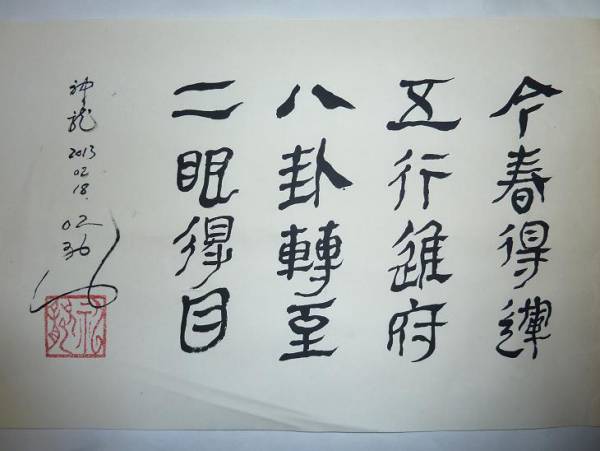 今春得運
五行進府
八卦轉至
二眼得目
神龍 2013 02 18.
02
36